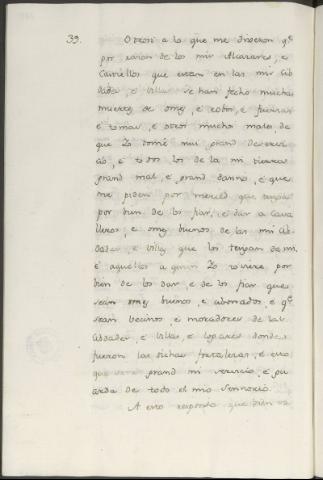 39. Otrosi a lo que me dixeron qe
por razon de los mis Alcazares, e
Castiellos que estan en las mis Cib
dades, e Villas se han fecho muchas
muertes de omes, e robos, e fuerzas
e tomas, e otros muchos males de
que Yo tomé muy grand deservi
cio, e todos los de la mi tierra
grand mal, e grand danno, e que
me piden por merced que tenga
por bien de los fiar, e dar a Cava
lleros, e omes buenos de las mis Cib
dades, e Villas que los tengan de mi,
e aquellos a quien Yo toviere por
bien de los dar, e de los fiar que
sean omes buenos, e abonados, e qe
sean vecinos, e moradores de las
Cibdades, e Villas, e logares donde
fueren las dichas fortalezas, e esto
que sera grand mi servicio, e gu
arda de todo el mio Sennorio.
A esto respondo que bien se